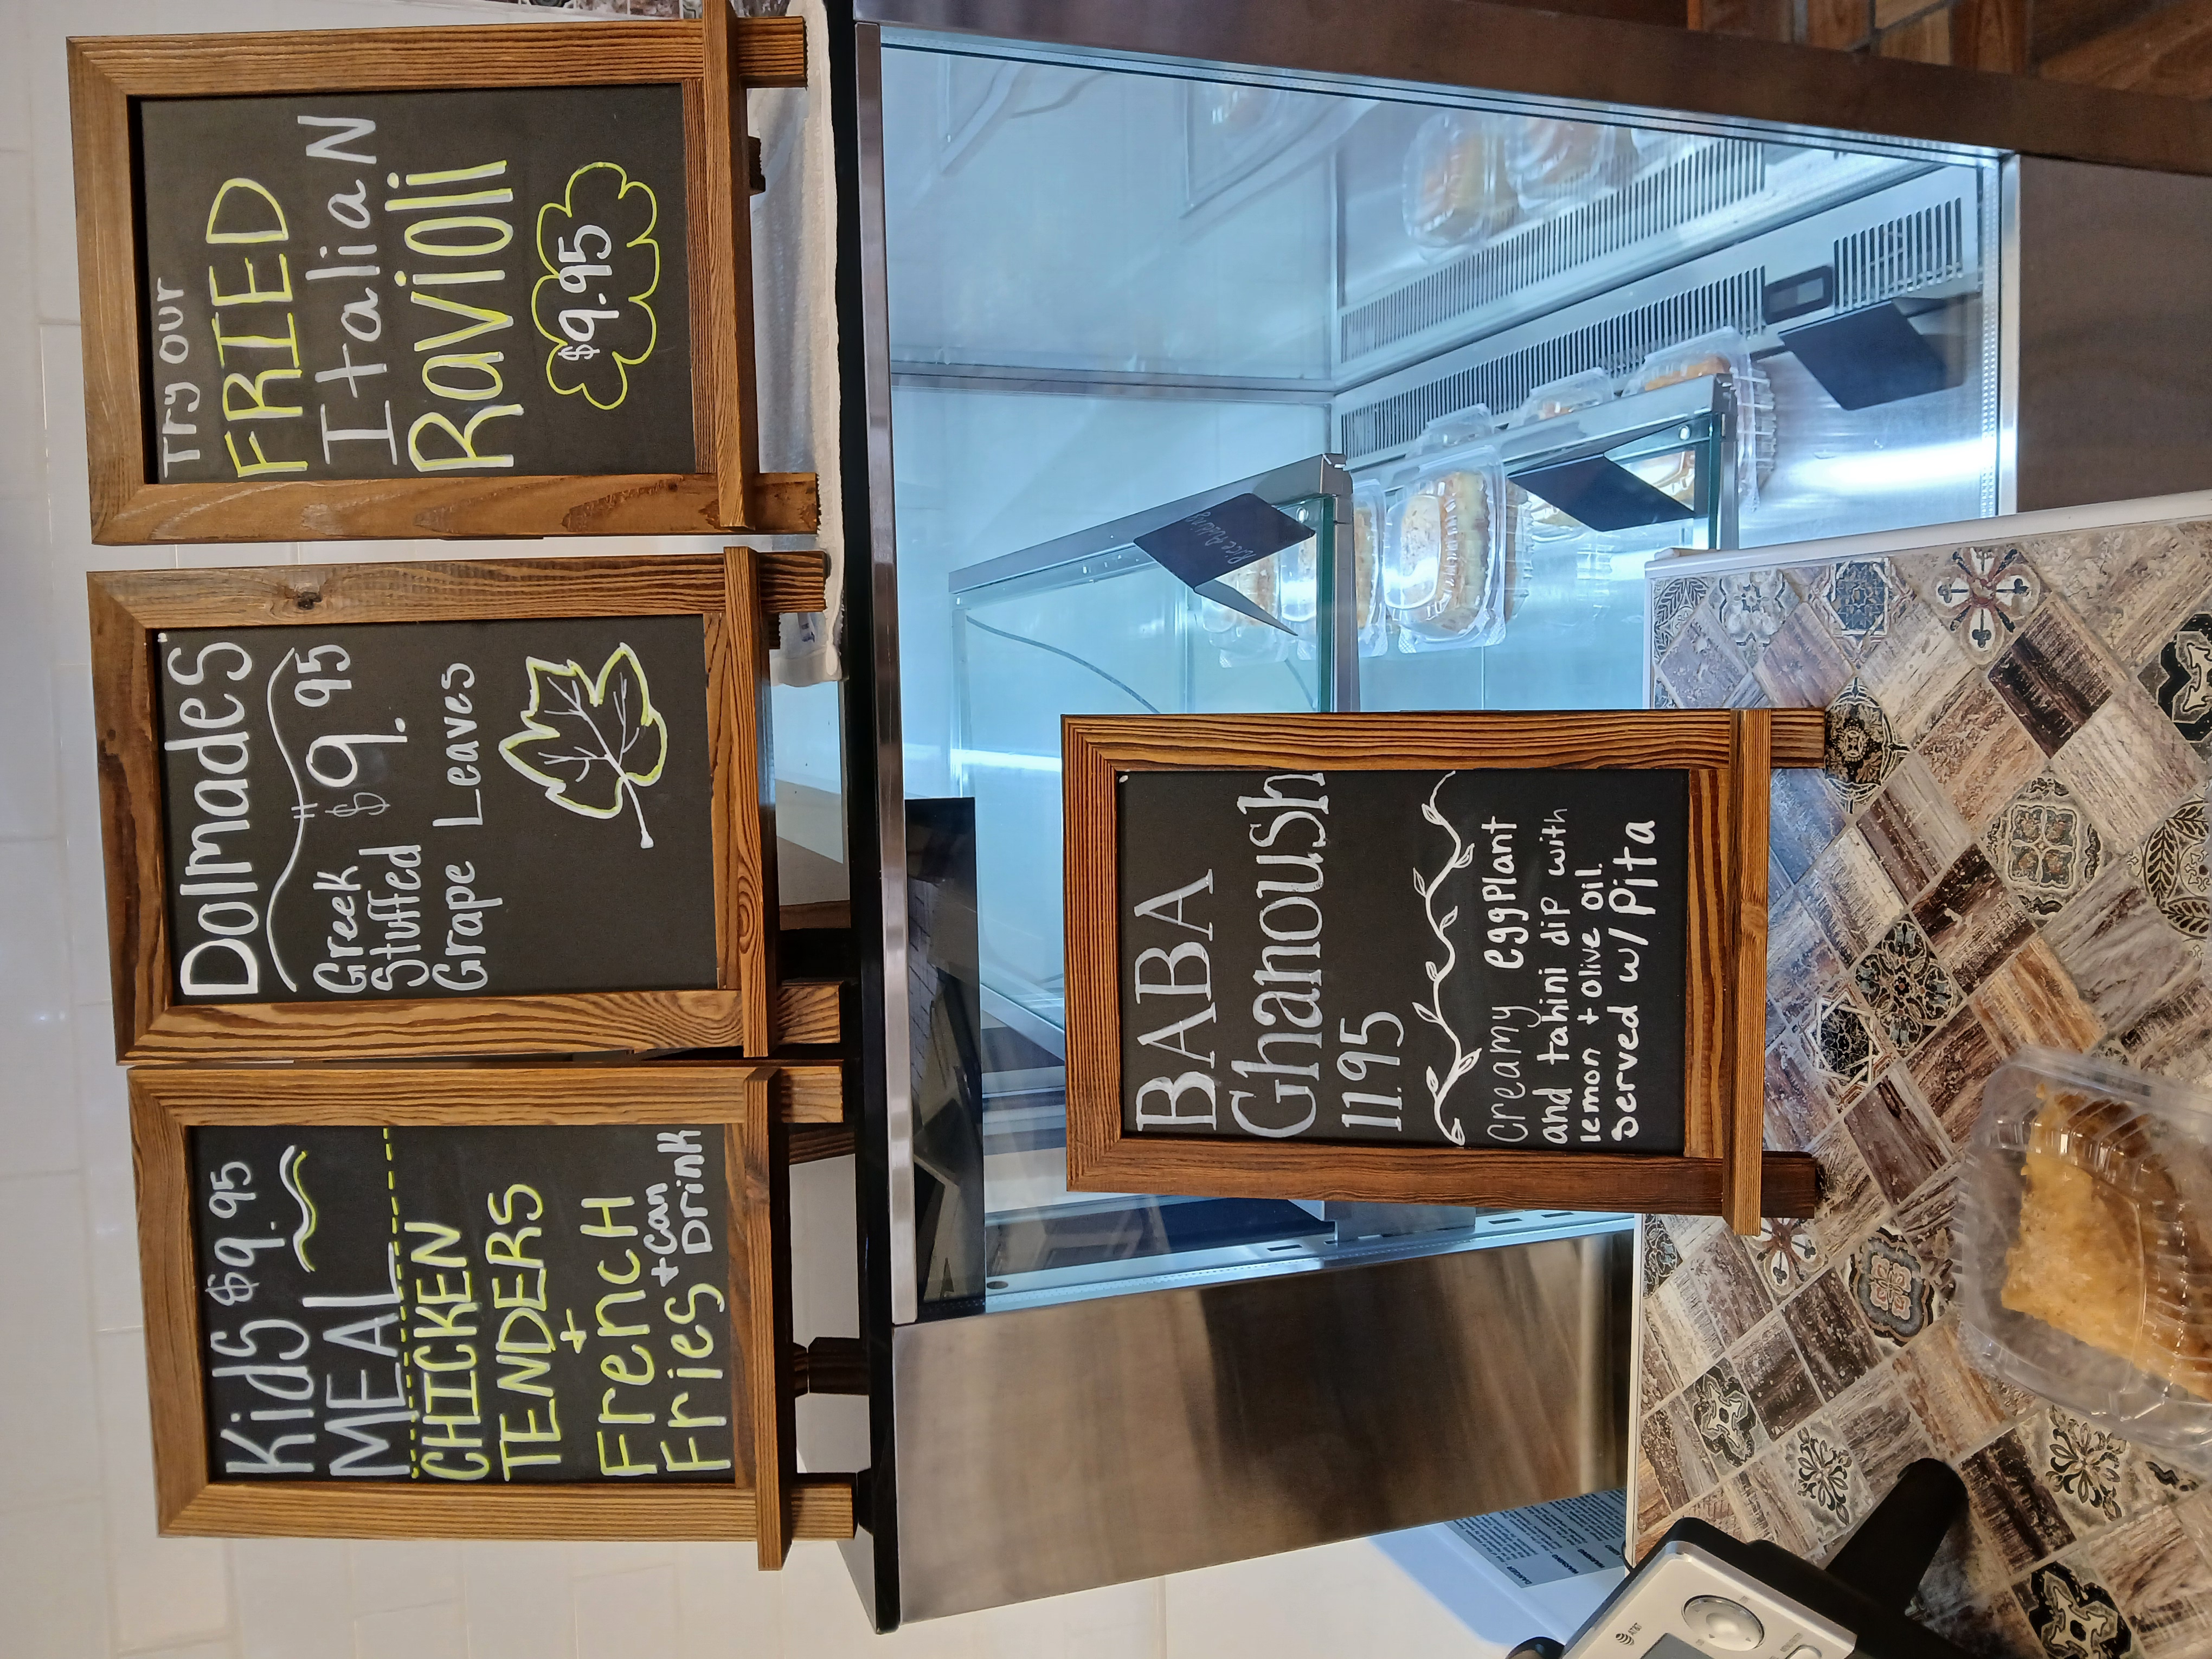 Kids $9.95
MEAL
CHICKEN
TENDERS
+
French
Fries + can
Drink
Dolmades
$9.95
Greek
Stuffed
Grape Leaves
Try our
FRIED
ItaliaN
Ravioli
$9.95
BABA
Ghanoush
11.95
Creamy eggplant
and tahini dip with
lemon + olive oil.
served w/ Pita
AT&T